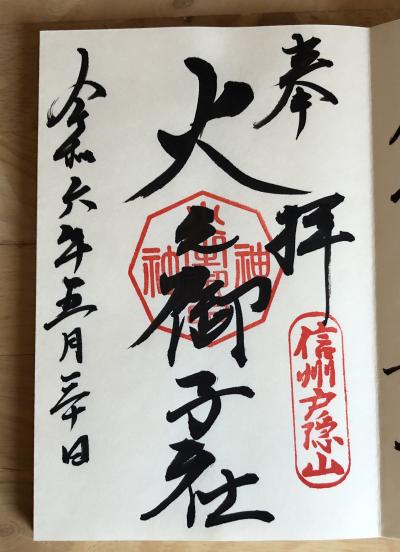 奉拝
信州戸隠山
火之御子社
令和六年五月三十日